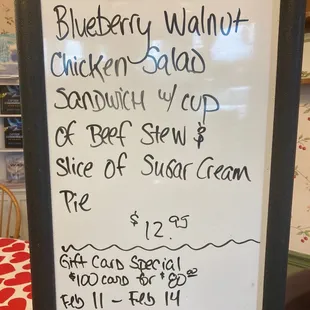 Blueberry Walnut
Chicken Salad
Sandwich w/ cup
of Beef Stew &
Slice of Sugar Cream
Pie
$12.95
Gift Card Special
$100 card for $80.00
Feb 11 - Feb 14